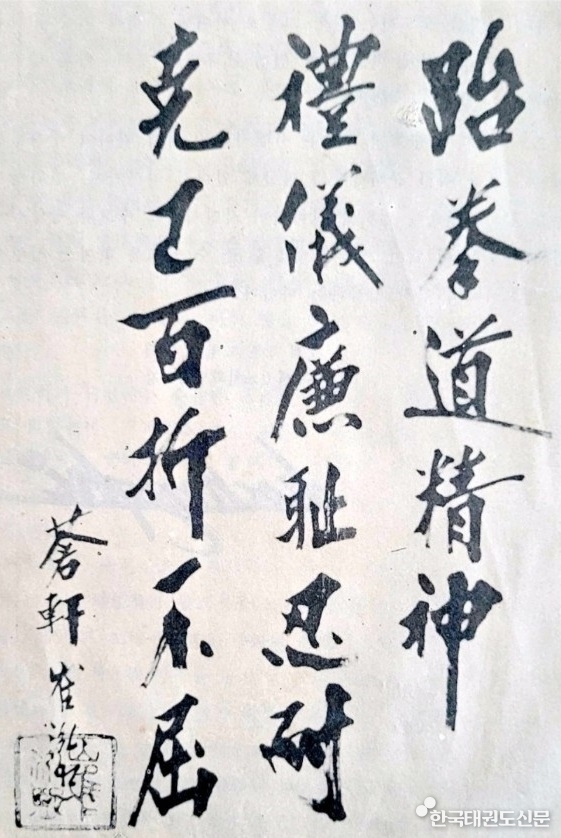 跆拳道精神
禮儀廉耻忍耐
克己百折不屈
蒼軒崔泓熙
한국태권도신문